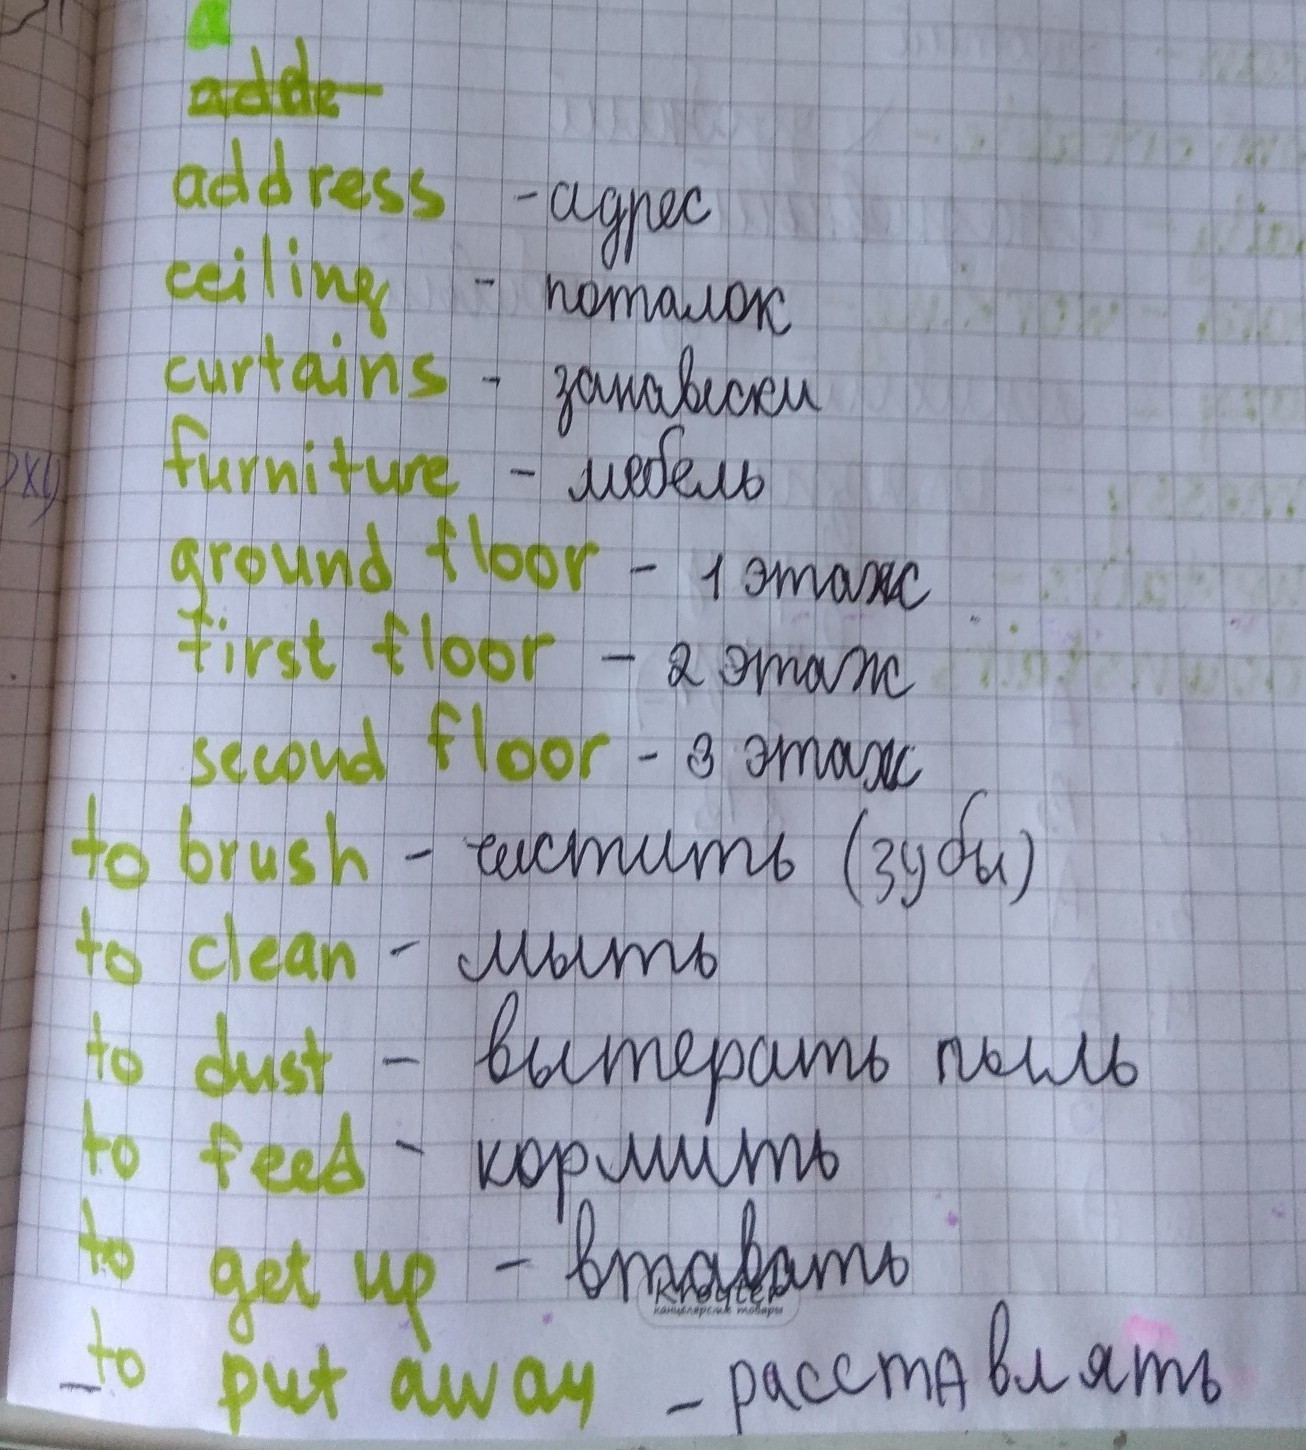 adde
address - адрес
ceiling - поталок
curtains - занависки
furniture - мебель
ground floor - 1 этаж
first floor - 2 этаж
second floor - 3 этаж
to brush - чистить (зубы)
to clean - мыть
to dust - вытерать пыль
to feed - кормить
to get up - втавать
канцелярские товары
to put away - расставлять